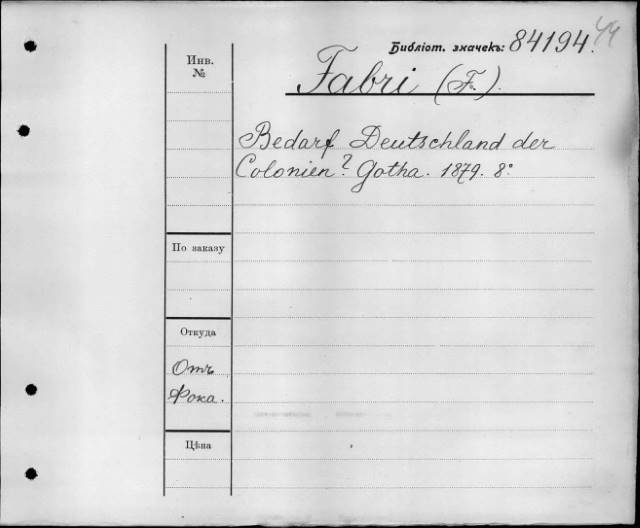 Библіот. значекъ: 84194.
44
Инв. №
Fabri (F.).
Bedarf Deutschland der
Colonien? Gotha. 1879. 8°
По заказу
Откуда
Отъ
Фока.
Цѣна